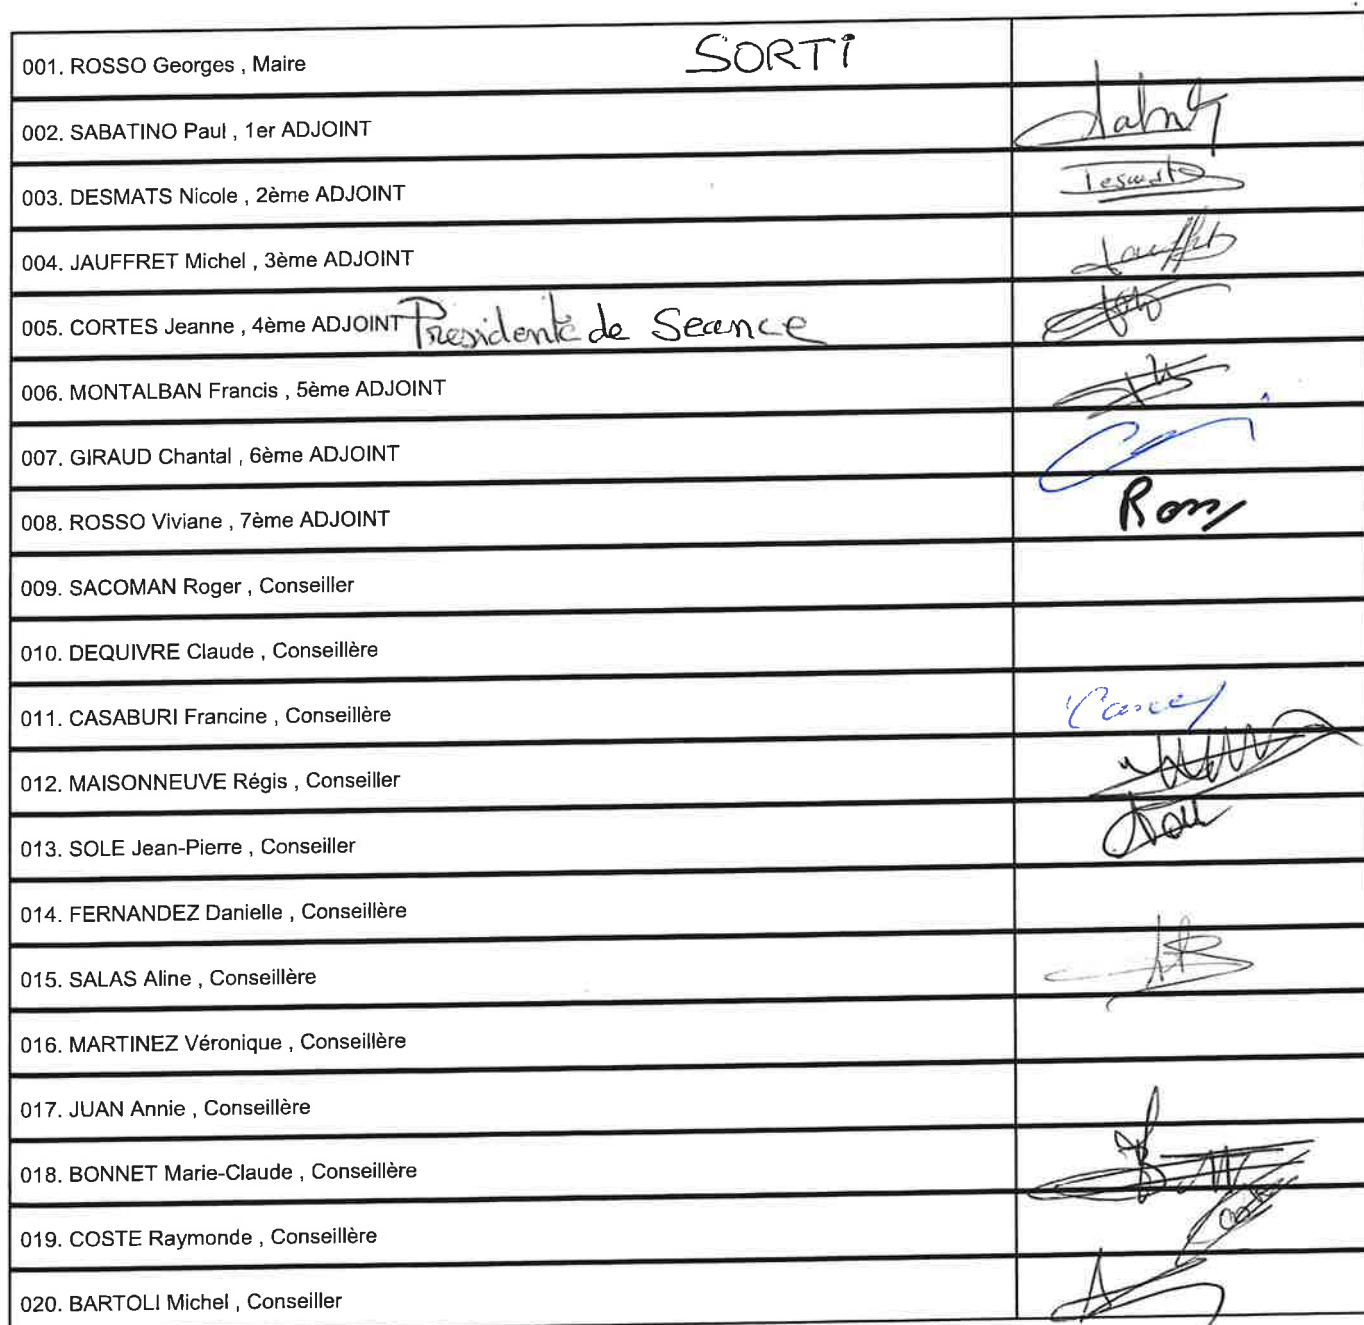 001. ROSSO Georges , Maire SORTI
002. SABATINO Paul , 1er ADJOINT
003. DESMATS Nicole , 2ème ADJOINT Desmats
004. JAUFFRET Michel , 3ème ADJOINT Jauffret
005. CORTES Jeanne , 4ème ADJOINT Presidente de Seance
006. MONTALBAN Francis , 5ème ADJOINT
007. GIRAUD Chantal , 6ème ADJOINT
008. ROSSO Viviane , 7ème ADJOINT
009. SACOMAN Roger , Conseiller
010. DEQUIVRE Claude , Conseillère
011. CASABURI Francine , Conseillère
012. MAISONNEUVE Régis , Conseiller
013. SOLE Jean-Pierre , Conseiller
014. FERNANDEZ Danielle , Conseillère
015. SALAS Aline , Conseillère
016. MARTINEZ Véronique , Conseillère
017. JUAN Annie , Conseillère
018. BONNET Marie-Claude , Conseillère
019. COSTE Raymonde , Conseillère
020. BARTOLI Michel , Conseiller